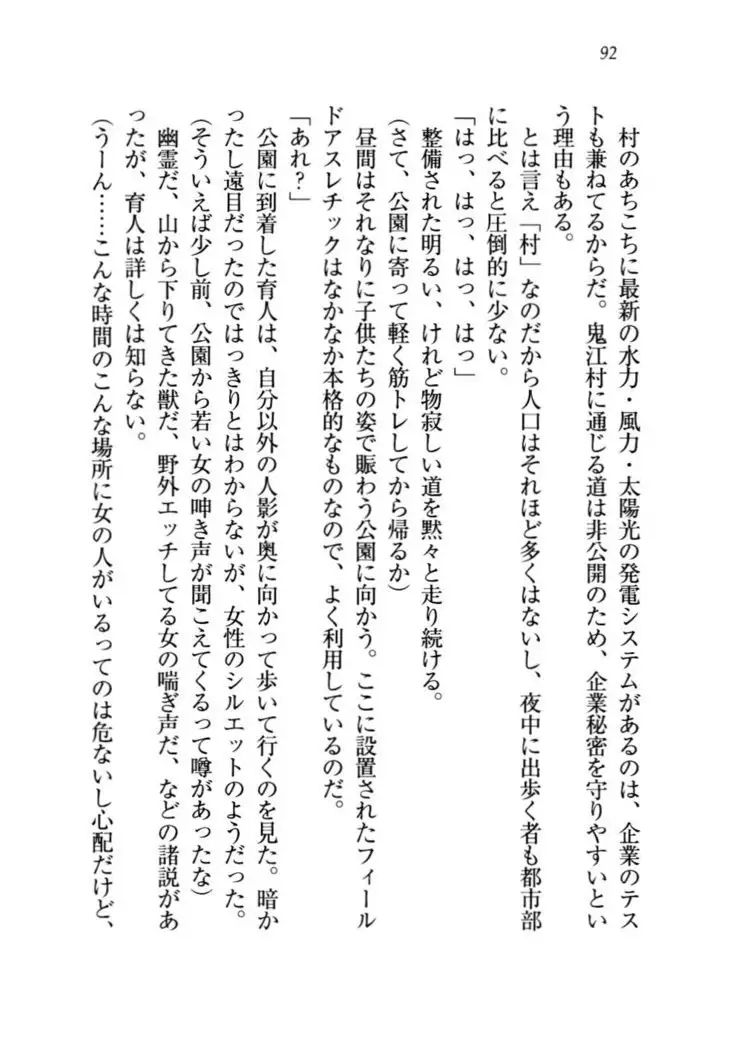 92
村のあちこちに最新の水力・風力・太陽光の発電システムがあるのは、企業のテス
トも兼ねてるからだ。鬼江村に通じる道は非公開のため、企業秘密を守りやすいとい
う理由もある。
とは言え「村」なのだから人口はそれほど多くはないし、夜中に出歩く者も都市部
に比べると圧倒的に少ない。
「はっ、はっ、はっ、はっ」
整備された明るい、けれど物寂しい道を黙々と走り続ける。
(さて、公園に寄って軽く筋トレしてから帰るか)
昼間はそれなりに子供たちの姿で賑わう公園に向かう。ここに設置されたフィール
ドアスレチックはなかなか本格的なものなので、よく利用しているのだ。
「あれ?」
公園に到着した育人は、自分以外の人影が奥に向かって歩いて行くのを見た。暗か
ったし遠目だったのではっきりとはわからないが、女性のシルエットのようだった。
(そういえば少し前、公園から若い女の呻き声が聞こえてくるって噂があったな)
幽霊だ、山から下りてきた獣だ、野外エッチしてる女の喘ぎ声だ、などの諸説があ
ったが、育人は詳しくは知らない。
(うーん……こんな時間のこんな場所に女の人がいるってのは危ないし心配だけど、